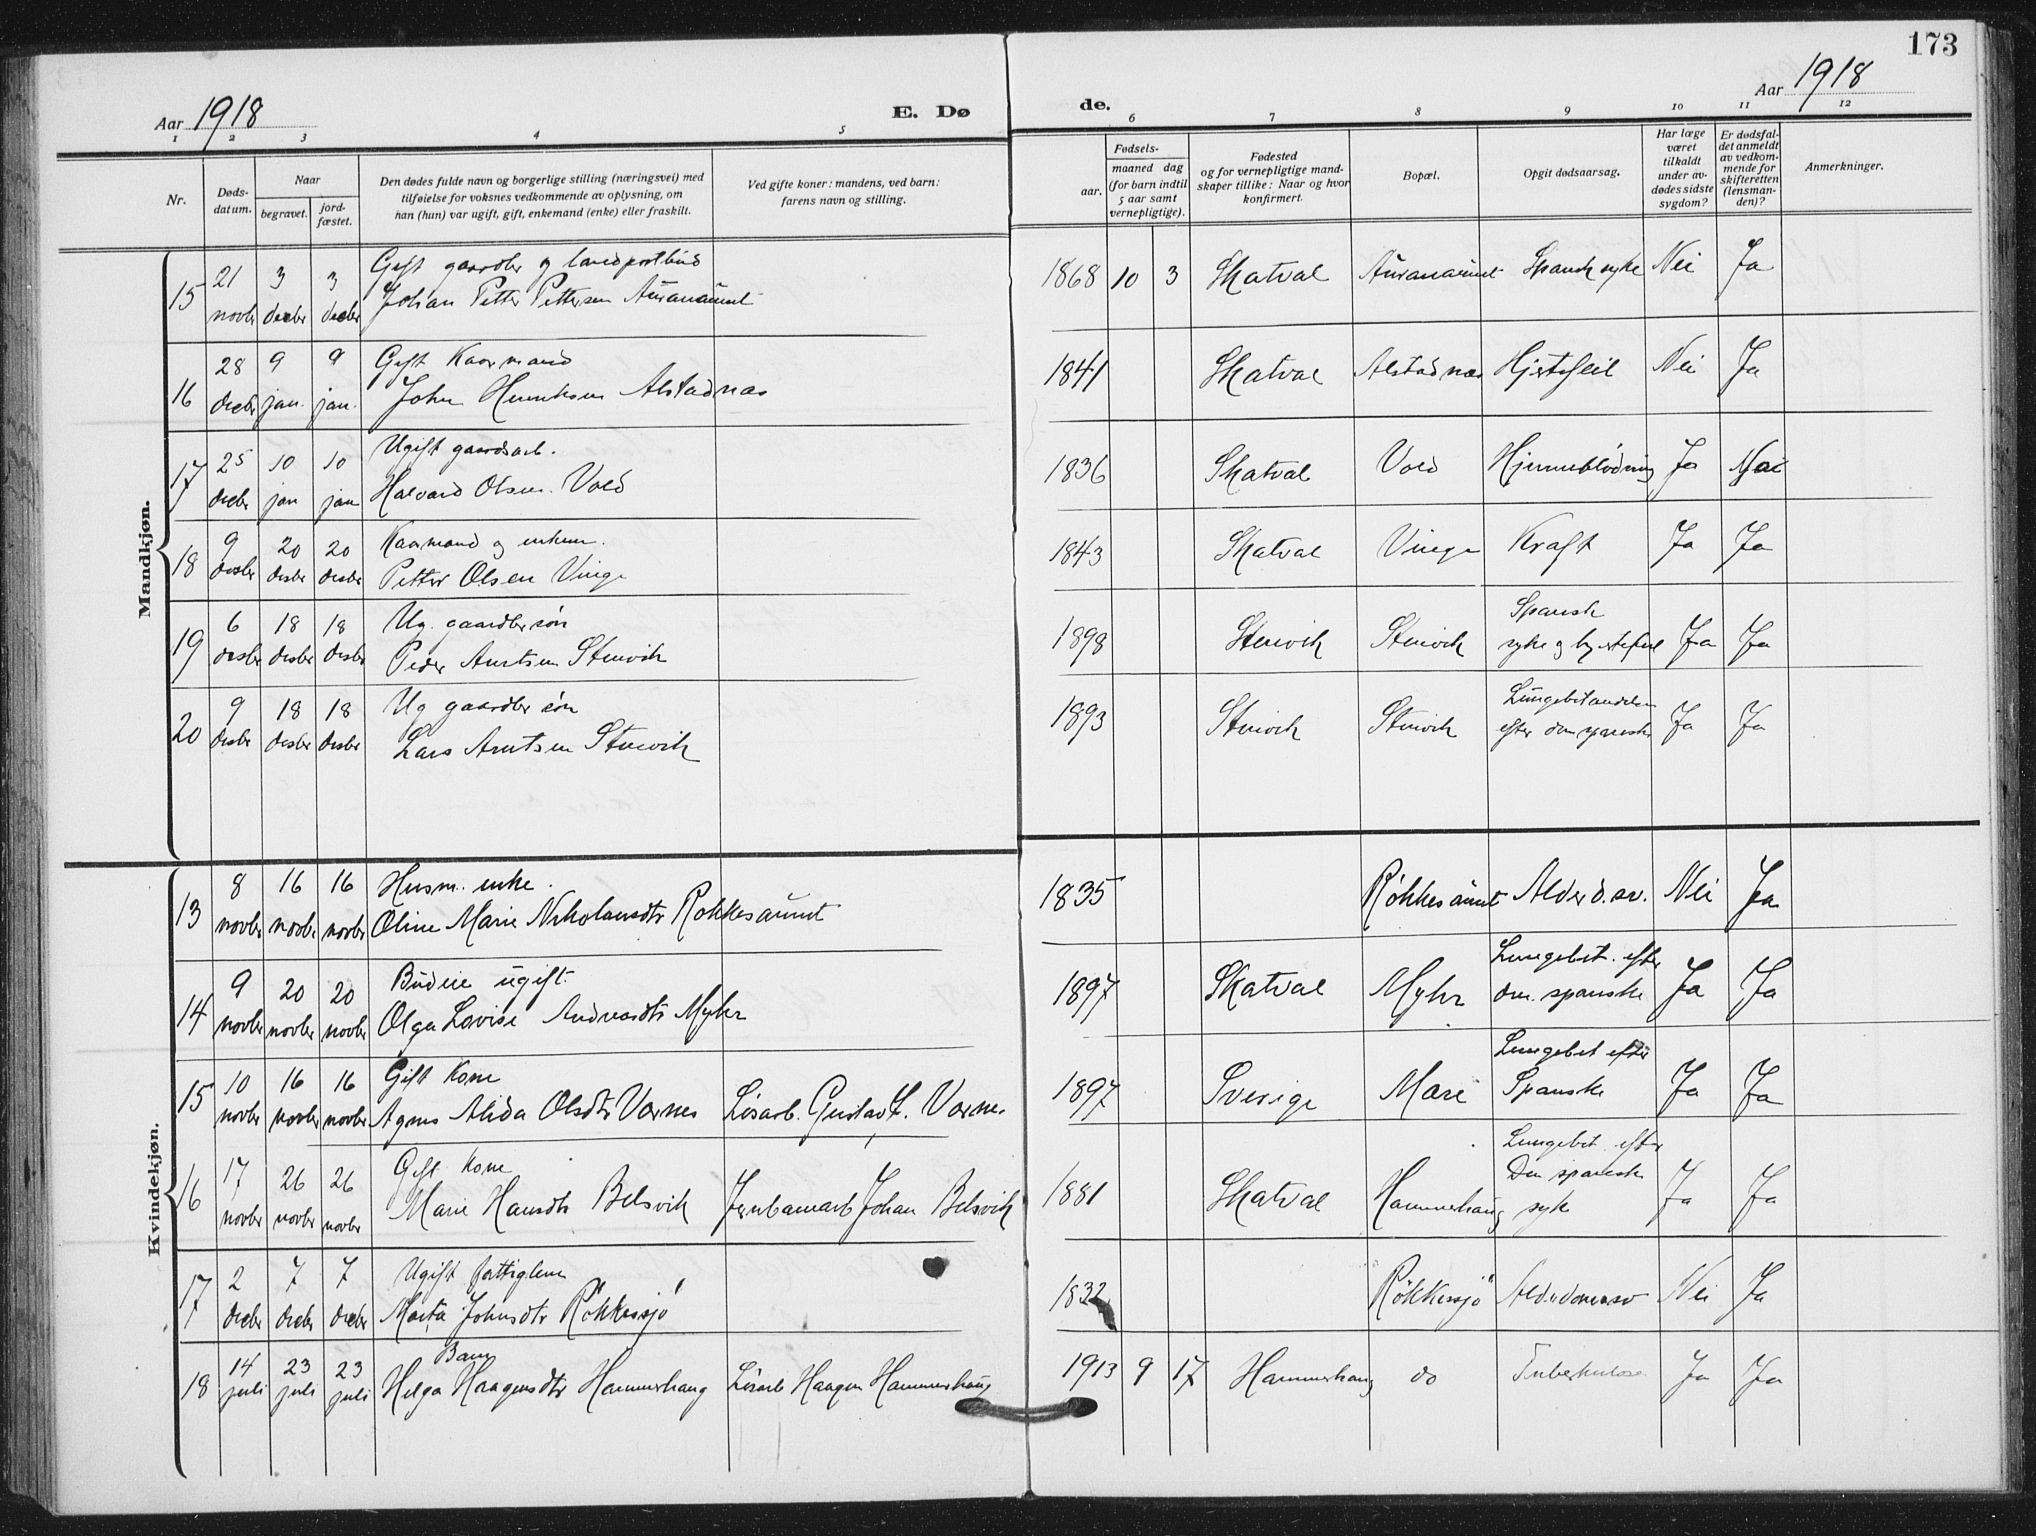 173
Aar 1918
E. Dø
de.
Aar 1918
1 2 3 4 5 6 7 8 9 10 11 12
Nr.
Døds-
datum.
Naar
begravet.
jord-
fæstet.
Den dødes fulde navn og borgerlige stilling (næringsvei) med
tilføielse for voksnes vedkommende av oplysning, om
han (hun) var ugift, gift, enkemand (enke) eller fraskilt.
Ved gifte koner: mandens, ved barn:
farens navn og stilling.
Fødsels-
aar.
maaned dag
(for barn indtil
5 aar samt
vernepligtige).
Fødested
og for vernepligtige mand-
skaper tillike: Naar og hvor
konfirmert.
Bopæl.
Opgit dødsaarsag.
Har læge
været
tilkaldt
under av-
dødes sidste
sygdom?
Er dødsfal-
det anmeldt
av vedkom-
mende for
skifteretten
(lensman-
den)?
Anmerkninger.
Mandkjøn.
15 21 novbr 3 decbr 3 decbr Gift gaardbr og landpostbud
Johan Petter Pettersen Auranaunet 1868 10 3 Skatval Auranaunet Spansk syke Nei Ja
16 28 decbr 9 jan. 9 jan. Gift Kaarmand
John Henriksen Alstadnæs 1841 Skatval Alstadnæs Hjertefeil Nei Ja
17 25 decbr 10 jan 10 jan Ugift gaardsarb.
Halvard Olsen Vold 1836 Skatval Vold Hjerneblødning Ja Nei
18 9 desbr 20 desbr 20 desbr Kaarmand og enkem.
Petter Olsen Vinge 1843 Skatval Vinge Kræft Ja Ja
19 6 desbr 18 desbr 18 desbr Ug. gaardbr søn
Peder Arntsen Stenvik 1898 Stenvik Stenvik Spansk
syke og hjertefeil Ja Ja
20 9 desbr 18 desbr 18 desbr Ug gaardbr søn
Lars Arntsen Stenvik 1893 Stenvik Stenvik Lungebetændelse
efter den spanske Ja Ja
Kvindekjøn.
13 8 novbr 16 novbr 16 novbr Husm. enke.
Oline Marie Nikolausdtr Røkkesaunet 1835 Røkkesaunet Alderd.sv. Nei Ja
14 9 novbr 20 novbr 20 novbr Budeie ugift.
Olga Lovise Andreasdtr Myhr 1897 Skatval Myhr Lungebet. efter
den spanske Ja Ja
15 10 novbr 16 novbr 16 novbr Gift Kone
Agnes Alida Olsdtr Værnes Løsarb. Gustav L. Værnes 1897 Sverige Mæri Lungebet efter
Spanske Ja Ja
16 17 novbr 26 novbr 26 novbr Gift Kone
Marie Hansdtr Belsvik Jernbanearb Johan Belsvik 1881 Skatval Hammerhaug Lungebet efter
Den spanske
syke Ja Ja
17 2 decbr 7 decbr 7 decbr Ugift fattiglem
Marta Johnsdtr Røkkesjø 1832 Røkkessjø Nei Ja
18 14 juli 23 juli 23 juli Barn
Helga Haagensdtr Hammerhaug Løsarb Haagen Hammerhaug 1913 9 17 Hammerhaug do Tuberkulose Ja Ja